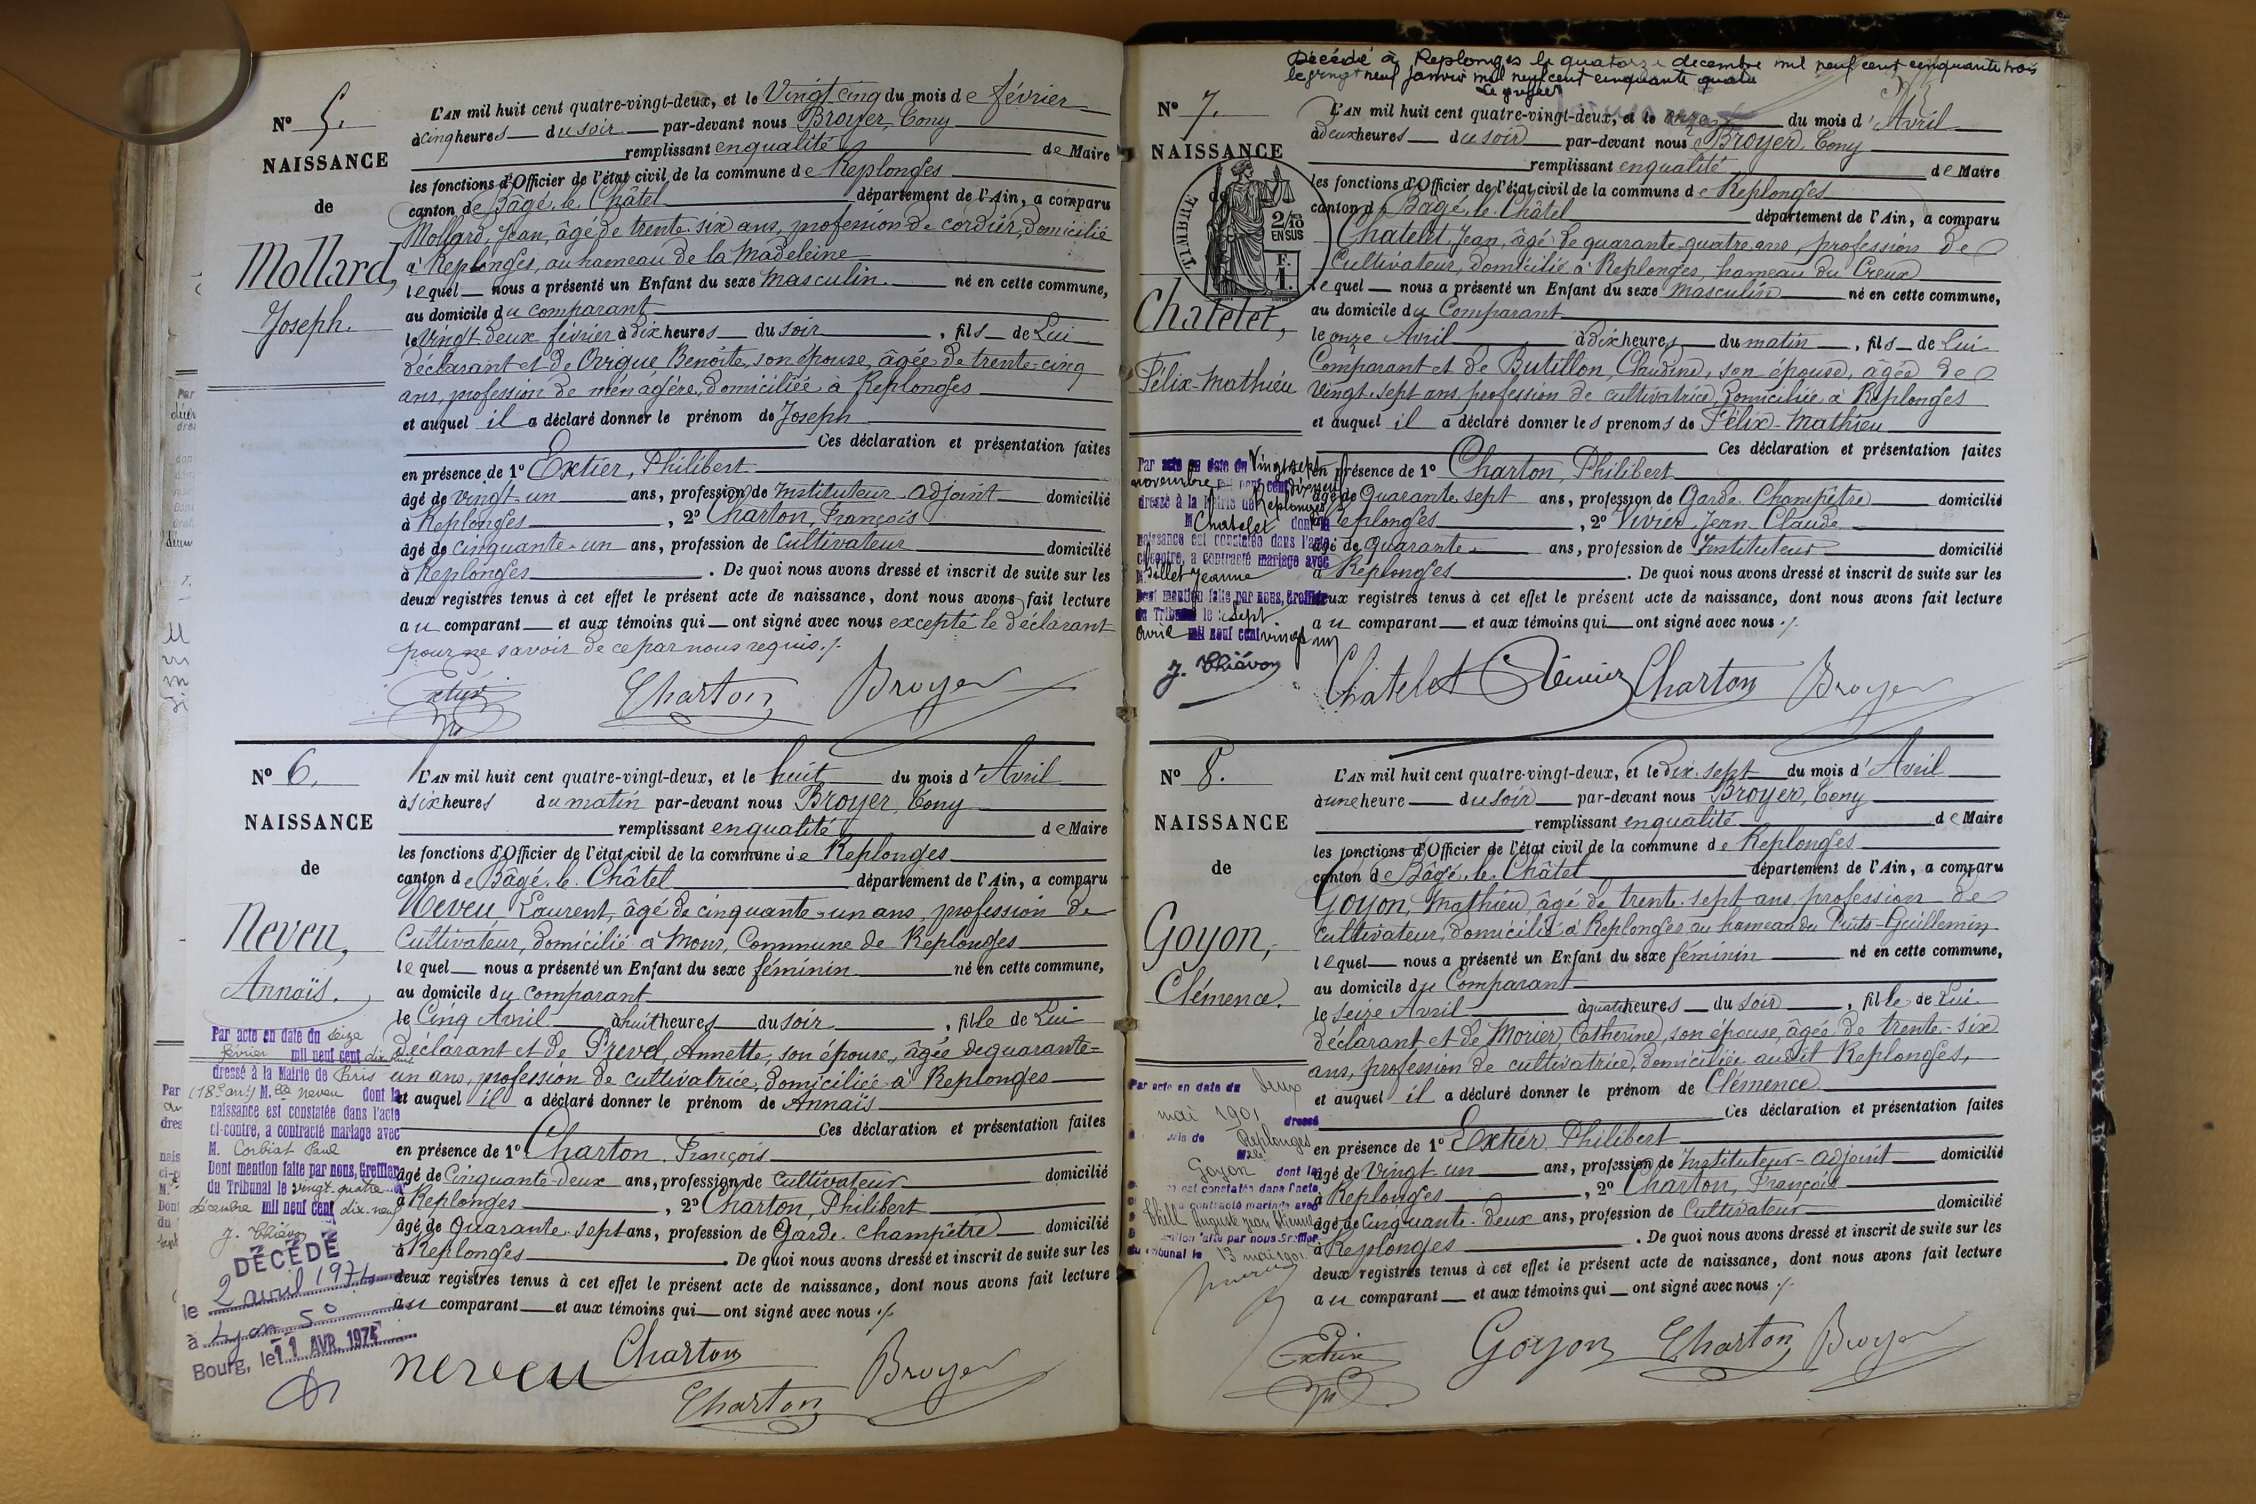 N° 5.
NAISSANCE
de
Mollard,
Joseph.
L'AN mil huit cent quatre-vingt-deux, et le Vingt-cinq du mois de février
à cinq heures du soir par-devant nous Broyer, Tony
remplissant en qualité de Maire
les fonctions d'Officier de l'état civil de la commune de Replonges
canton de Bâgé-le-Châtel département de l'Ain, a comparu
Mollard, Jean, âgé de trente-six ans, profession de cordier, domicilié
à Replonges, au hameau de la Madeleine
lequel nous a présenté un Enfant du sexe masculin. né en cette commune,
au domicile du comparant
le Vingt deux février à dix heures du soir, fils de Lui
déclarant et de Orrique, Benoîte, son épouse, âgée de trente-cinq
ans, profession de ménagère, domiciliée à Replonges
et auquel il a déclaré donner le prénom de Joseph
Ces déclaration et présentation faites
en présence de 1° Extier, Philibert
âgé de vingt-un ans, profession de Instituteur-adjoint domicilié
à Replonges, 2° Charton, François
âgé de cinquante-un ans, profession de Cultivateur domicilié
à Replonges. De quoi nous avons dressé et inscrit de suite sur les
deux registres tenus à cet effet le présent acte de naissance, dont nous avons fait lecture
au comparant et aux témoins qui ont signé avec nous excepté le déclarant
pour ne savoir de ce par nous requis ./.
Extier Charton Broyer
N° 6.
NAISSANCE
de
Neveu,
Annaïs.
Par acte en date du seize
février mil neuf cent dix huit
dressé à la Mairie de Paris
(18e arr.) M.elle Neveu dont la
naissance est constatée dans l'acte
ci-contre, a contracté mariage avec
M. Corbiat Paul
Dont mention faite par nous, Greffier
du Tribunal le vingt-quatre
décembre mil neuf cent dix-neuf
J. Thiévon
DÉCÉDÉ
le 2 avril 1974
à Lyon 5°
Bourg, le 11 AVR. 1974
L'AN mil huit cent quatre-vingt-deux, et le huit du mois d'Avril
à six heures du matin par-devant nous Broyer, Tony
remplissant en qualité de Maire
les fonctions d'Officier de l'état civil de la commune de Replonges
canton de Bâgé-le-Châtel département de l'Ain, a comparu
Neveu, Laurent, âgé de cinquante-un ans, profession de
Cultivateur, domicilié à Mons, Commune de Replonges
lequel nous a présenté un Enfant du sexe féminin né en cette commune,
au domicile du comparant
le Cinq Avril à huit heures du soir, fille de Lui
déclarant et de Prevel, Annette, son épouse, âgée de quarante-
un ans, profession de cultivatrice, domiciliée à Replonges
et auquel il a déclaré donner le prénom de Annaïs
Ces déclaration et présentation faites
en présence de 1° Charton, François
âgé de Cinquante-deux ans, profession de Cultivateur domicilié
à Replonges, 2° Charton, Philibert
âgé de Quarante-sept ans, profession de Garde-Champêtre domicilié
à Replonges. De quoi nous avons dressé et inscrit de suite sur les
deux registres tenus à cet effet le présent acte de naissance, dont nous avons fait lecture
au comparant et aux témoins qui ont signé avec nous ./.
neveu Charton Broyer
Charton
Décédé à Replonges le quatorze décembre mil neuf cent cinquante trois
le vingt neuf janvier mil neuf cent cinquante quatre
Le greffier
N° 7.
NAISSANCE
de
TIMBRE
2/10 EN SUS
F. 1.
Chatelet,
Félix-Mathieu
Par acte en date du Vingt sept
novembre mil neuf cent dix neuf
dressé à la Mairie de Replonges
M Chatelet dont la
naissance est constatée dans l'acte
ci-contre, a contracté mariage avec
M. Billet Jeanne
Dont mention faite par nous, Greffier
du Tribunal le sept
avril mil neuf cent vingt un
J. Thiévon
L'AN mil huit cent quatre-vingt-deux, et le onze du mois d'Avril
à deux heures du soir par-devant nous Broyer, Tony
remplissant en qualité de Maire
les fonctions d'Officier de l'état civil de la commune de Replonges
canton de Bâgé-le-Châtel département de l'Ain, a comparu
Chatelet, Jean, âgé de quarante-quatre ans, profession de
Cultivateur, domicilié à Replonges, hameau du Creux
lequel nous a présenté un Enfant du sexe masculin né en cette commune,
au domicile du Comparant
le onze Avril à dix heures du matin, fils de Lui
Comparant et de Butillon, Claudine, son épouse, âgée de
Vingt-sept ans, profession de cultivatrice, domiciliée à Replonges
et auquel il a déclaré donner les prenoms de Félix-Mathieu
Ces déclaration et présentation faites
en présence de 1° Charton, Philibert
âgé de Quarante sept ans, profession de Garde-Champêtre domicilié
à Replonges, 2° Vivier, Jean-Claude
âgé de quarante ans, profession de Instituteur domicilié
à Replonges. De quoi nous avons dressé et inscrit de suite sur les
deux registres tenus à cet effet le présent acte de naissance, dont nous avons fait lecture
au comparant et aux témoins qui ont signé avec nous ./.
Châtelet Vivier Charton Broyer
N° 8.
NAISSANCE
de
Goyon,
Clémence.
Par acte en date du deux
mai 1901 dressé
de Replonges
Goyon dont la
est constatée dans l'acte
a contracté mariage avec
Auguste Jean
mention faite par nous Greffier
du tribunal le 13 mai 1901
L'AN mil huit cent quatre-vingt-deux, et le dix-sept du mois d'Avril
à une heure du soir par-devant nous Broyer, Tony
remplissant en qualité de Maire
les fonctions d'Officier de l'état civil de la commune de Replonges
canton de Bâgé-le-Châtel département de l'Ain, a comparu
Goyon, Mathieu, âgé de trente-sept ans, profession de
Cultivateur, domicilié à Replonges au hameau du Puits-Guillemin
lequel nous a présenté un Enfant du sexe féminin né en cette commune,
au domicile du Comparant
le seize Avril à quatre heures du soir, fille de Lui
déclarant et de Morier, Catherine, son épouse, âgée de trente-six
ans, profession de cultivatrice, domiciliée audit Replonges,
et auquel il a déclaré donner le prénom de Clémence
Ces déclaration et présentation faites
en présence de 1° Extier, Philibert
âgé de Vingt-un ans, profession de Instituteur-adjoint domicilié
à Replonges, 2° Charton, François
âgé de Cinquante-deux ans, profession de Cultivateur domicilié
à Replonges. De quoi nous avons dressé et inscrit de suite sur les
deux registres tenus à cet effet le présent acte de naissance, dont nous avons fait lecture
au comparant et aux témoins qui ont signé avec nous ./.
Extier Goyon Charton Broyer